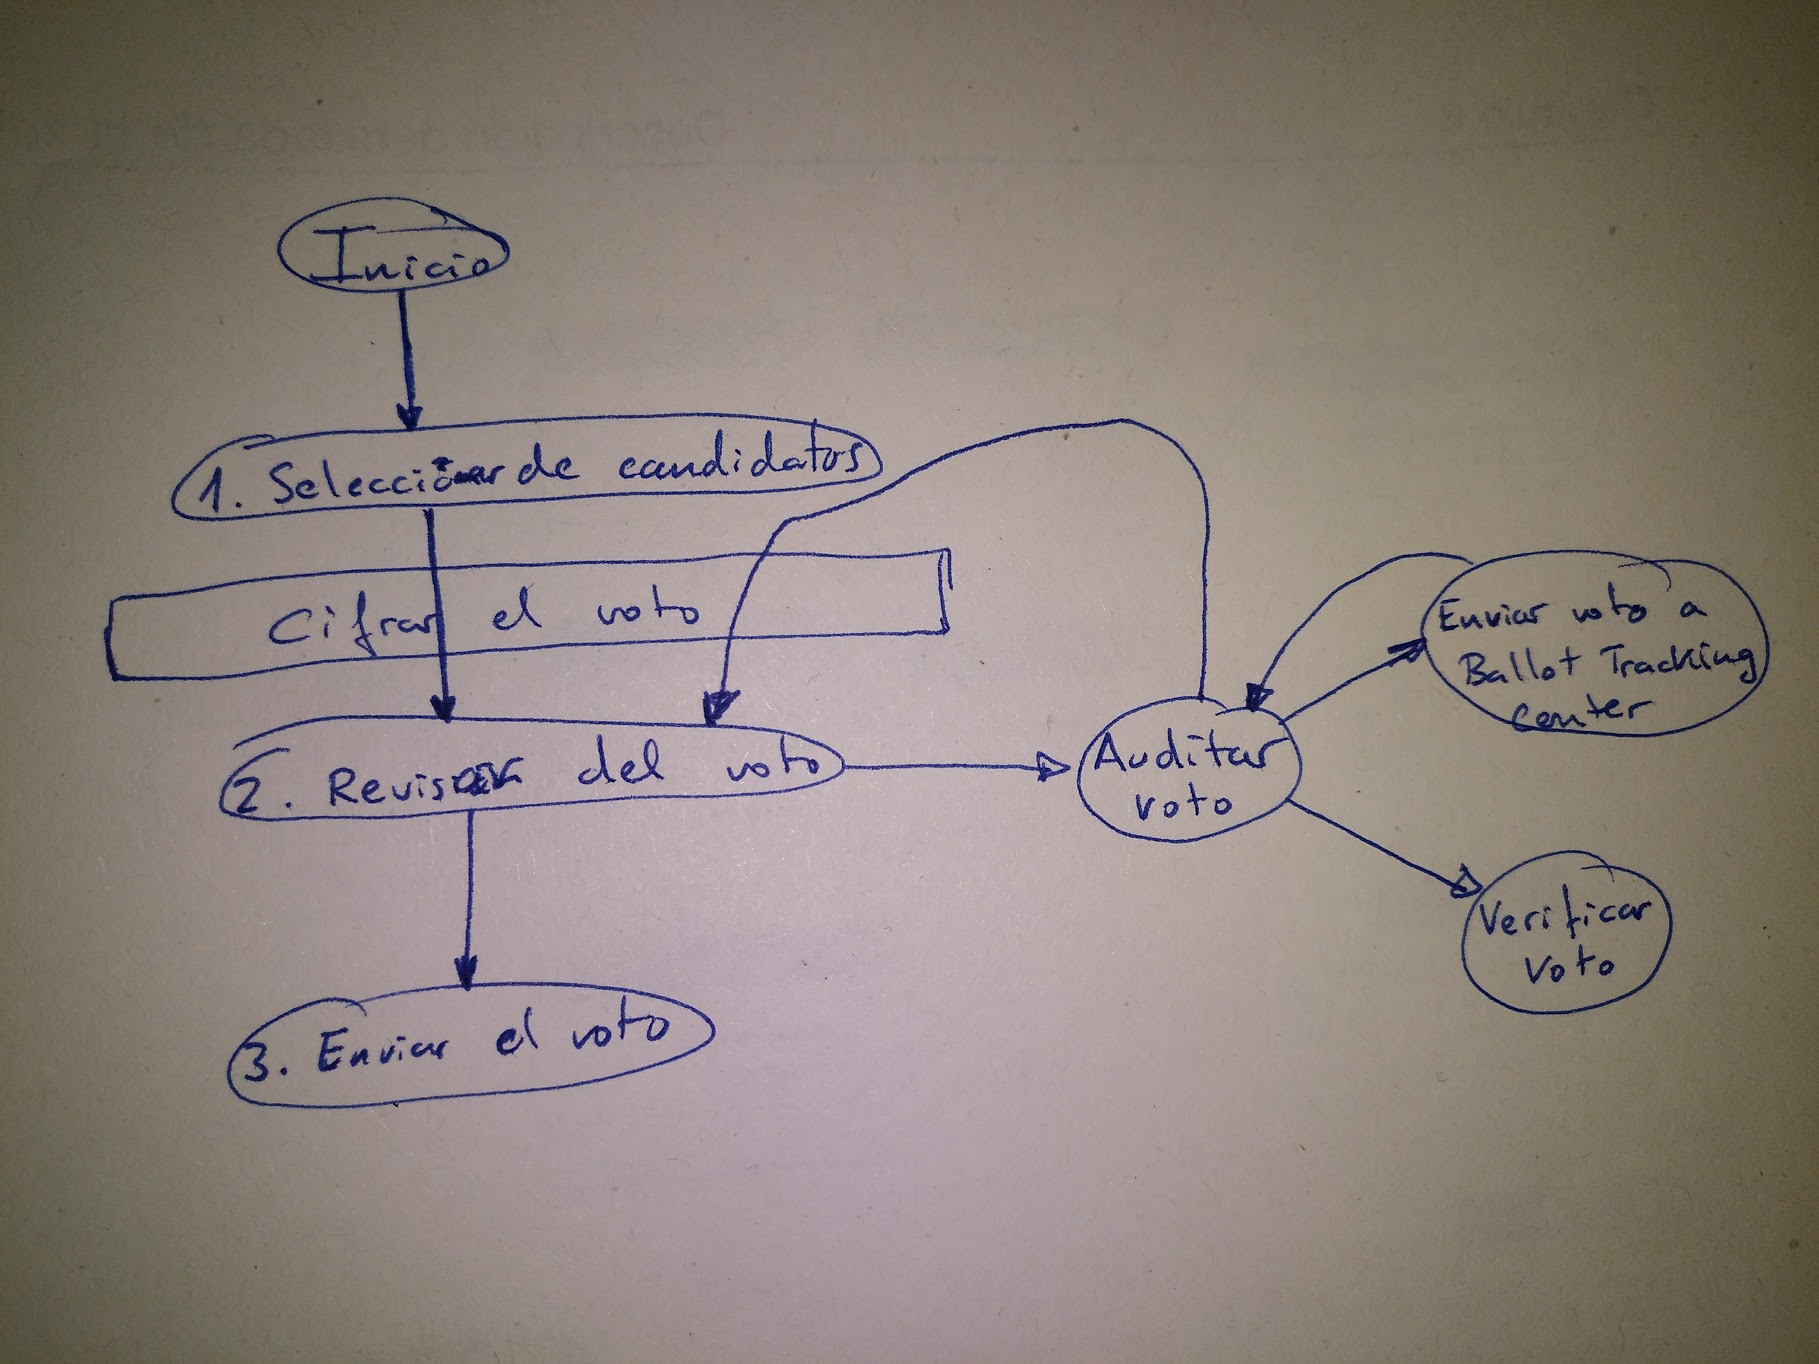 Inicio
1. Seleccionar de candidatos
Cifrar el voto
2. Revisión del voto
3. Enviar el voto
Auditar
voto
Enviar voto a
Ballot Tracking
Center
Verificar
voto